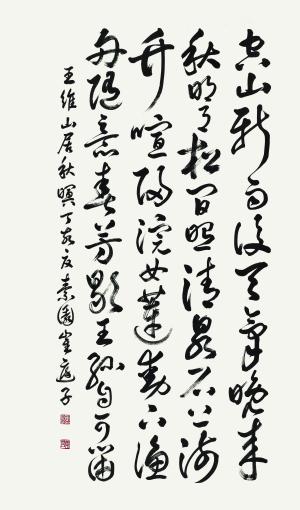 空山新雨後天氣晚來
秋明月松間照清泉石上流
竹喧歸浣女蓮動下漁
舟隨意春芳歇王孫自可留
王維山居秋暝丁亥夏素園